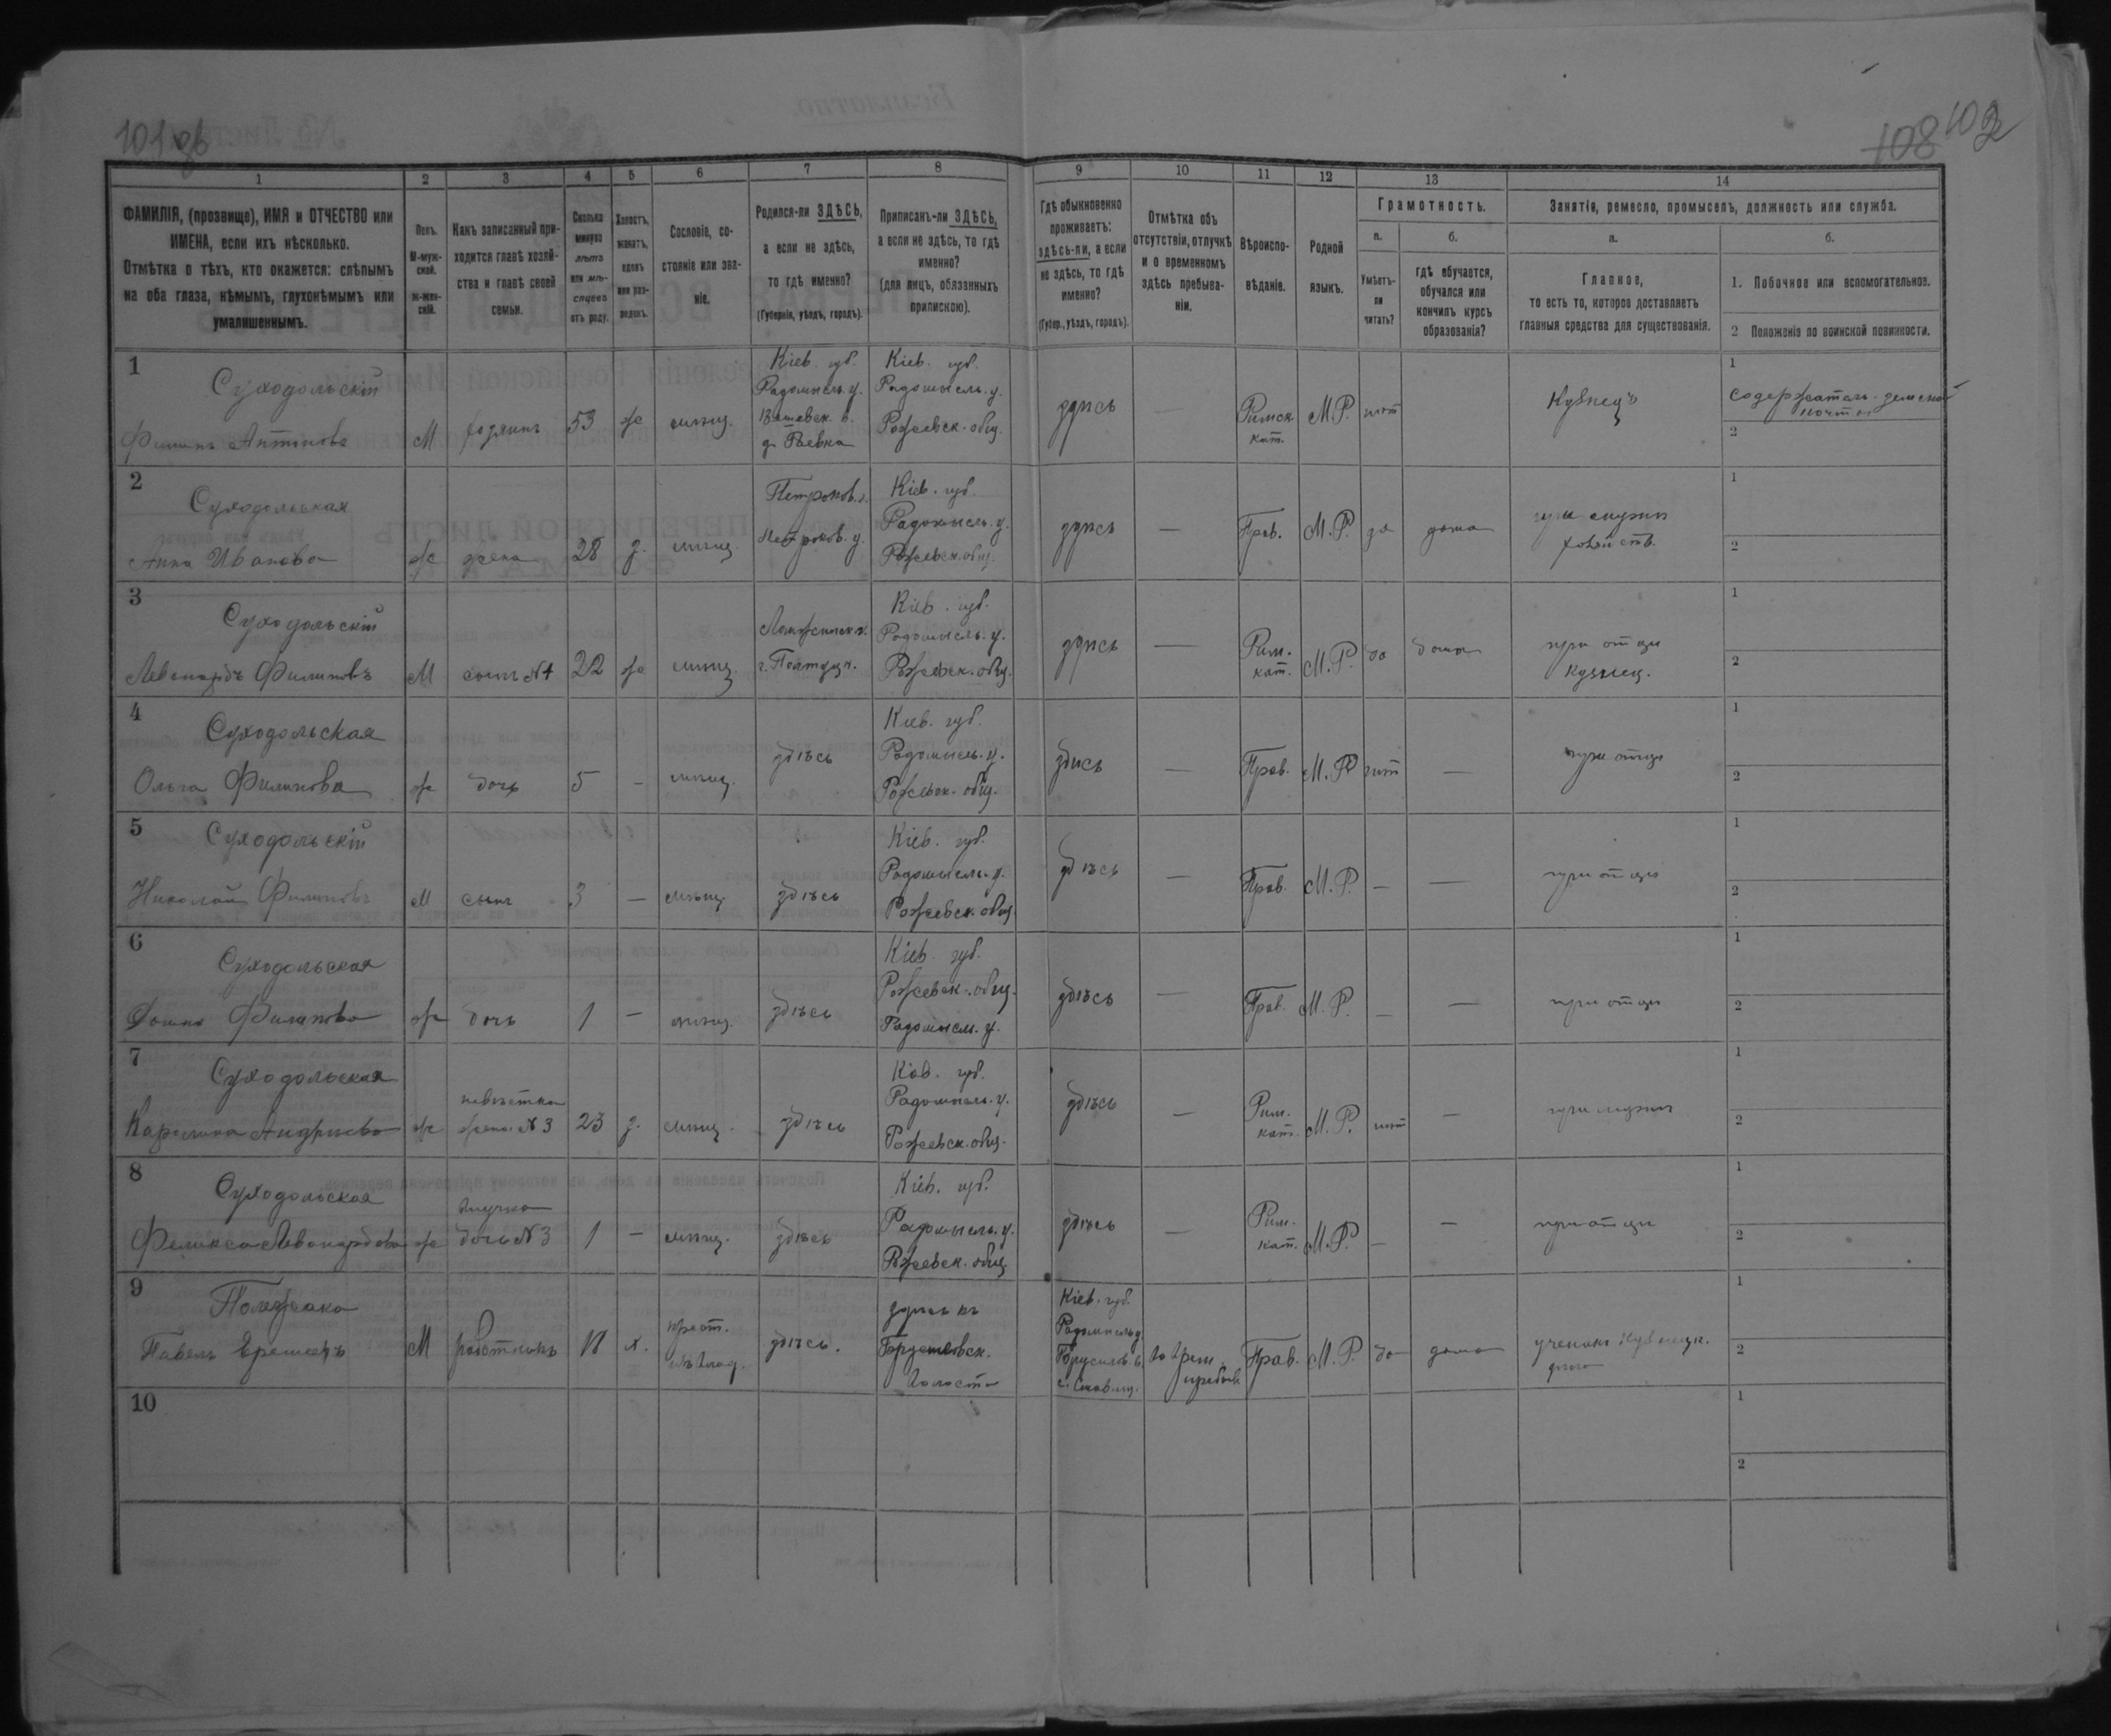 101 об
108 102
1 2 3 4 5 6 7 8 9 10 11 12 13 14
ФАМИЛІЯ, (прозвище), ИМЯ и ОТЧЕСТВО или ИМЕНА, если ихъ нѣсколько.
Отмѣтка о тѣхъ, кто окажется: слѣпымъ на оба глаза, нѣмымъ, глухонѣмымъ или умалишеннымъ.
Полъ.
М-мужской.
ж-женскій.
Какъ записанный приходится главѣ хозяйства и главѣ своей семьи.
Сколько минуло лѣтъ или мѣсяцевъ отъ роду.
Холостъ, женатъ, вдовъ или разведенъ.
Сословіе, состояніе или званіе.
Родился-ли ЗДѢСЬ, а если не здѣсь, то гдѣ именно?
(Губернія, уѣздъ, городъ).
Приписанъ-ли ЗДѢСЬ, а если не здѣсь, то гдѣ именно?
(для лицъ, обязанныхъ припискою).
Гдѣ обыкновенно проживаетъ: здѣсь-ли, а если не здѣсь, то гдѣ именно?
(Губер., уѣздъ, городъ).
Отмѣтка объ отсутствіи, отлучкѣ и о временномъ здѣсь пребываніи.
Вѣроисповѣданіе.
Родной языкъ.
Грамотность.
а.
Умѣетъ-ли читать?
б.
гдѣ обучается, обучался или кончилъ курсъ образованія?
Занятіе, ремесло, промыселъ, должность или служба.
а.
Главное,
то есть то, которое доставляетъ главныя средства для существованія.
б.
1. Побочное или вспомогательное.
2 Положеніе по воинской повинности.
1
Суходольскій
Филипъ Антоновъ
М
хозяинъ
53
ж
мѣщ.
Кіев. губ.
Радомысль. у.
Кіев. губ.
Радомысль. у.
Рожевск. общ.
здѣсь
—
Римск.
кат.
М.Р.
нѣт
Кузнецъ
1
Содержатель земской
почты
2
2
Суходольская
Анна Иванова
ж
жена
28
з.
мѣщ.
Петроков. г.
Петроков. у.
Кіев. губ.
Радомысль. у.
Рожевск. общ.
здѣсь
—
Прав.
М.Р.
да
дома
при мужѣ
хозяйств.
1
2
3
Суходольскій
Левонардъ Филиповъ
М
сынъ №1
22
ж
мѣщ.
Кіев. губ.
Радомысль. у.
Рожевск. общ.
здѣсь
—
Рим.
кат.
М.Р.
да
дома
при отцѣ
кузнец.
1
2
4
Суходольская
Ольга Филипова
ж
дочь
5
-
мѣщ.
здѣсь
Кіев. губ.
Радомысль. у.
Рожевск. общ.
здѣсь
—
Прав.
М.Р.
нѣт
—
при отцѣ
1
2
5
Суходольскій
Николай Филиповъ
М
сынъ
3
—
мѣщ.
здѣсь
Кіев. губ.
Радомысль. у.
Рожевск. общ.
здѣсь
—
Прав.
М.Р.
—
—
при отцѣ
1
2
6
Суходольская
Филипова
ж
дочь
1
—
мѣщ.
здѣсь
Кіев. губ.
Рожевск. общ.
Радомысл. у.
здѣсь
—
Прав.
М.Р.
—
—
при отцѣ
1
2
7
Суходольская
Каролина Андрѣева
ж
невѣстка
жена №3
23
з.
мѣщ.
здѣсь
Кіев. губ.
Радомысль. у.
Рожевск. общ.
здѣсь
—
Рим.
кат.
М.Р.
нѣт
—
при мужѣ
1
2
8
Суходольская
Феликса Левонардова
ж
внучка
дочь №3
1
—
мѣщ.
здѣсь
Кіев. губ.
Радомысль. у.
Рожевск. общ.
здѣсь
—
Рим.
кат.
М.Р.
—
—
при отцѣ
1
2
9
Павелъ
М
работникъ
х.
крест.
здѣсь.
здѣсь въ
Волости
Кіев. губ.
Радомысль у.
Брусилов. в.
Прав.
М.Р.
да
дома
ученикъ кузнецк.
1
2
10
1
2